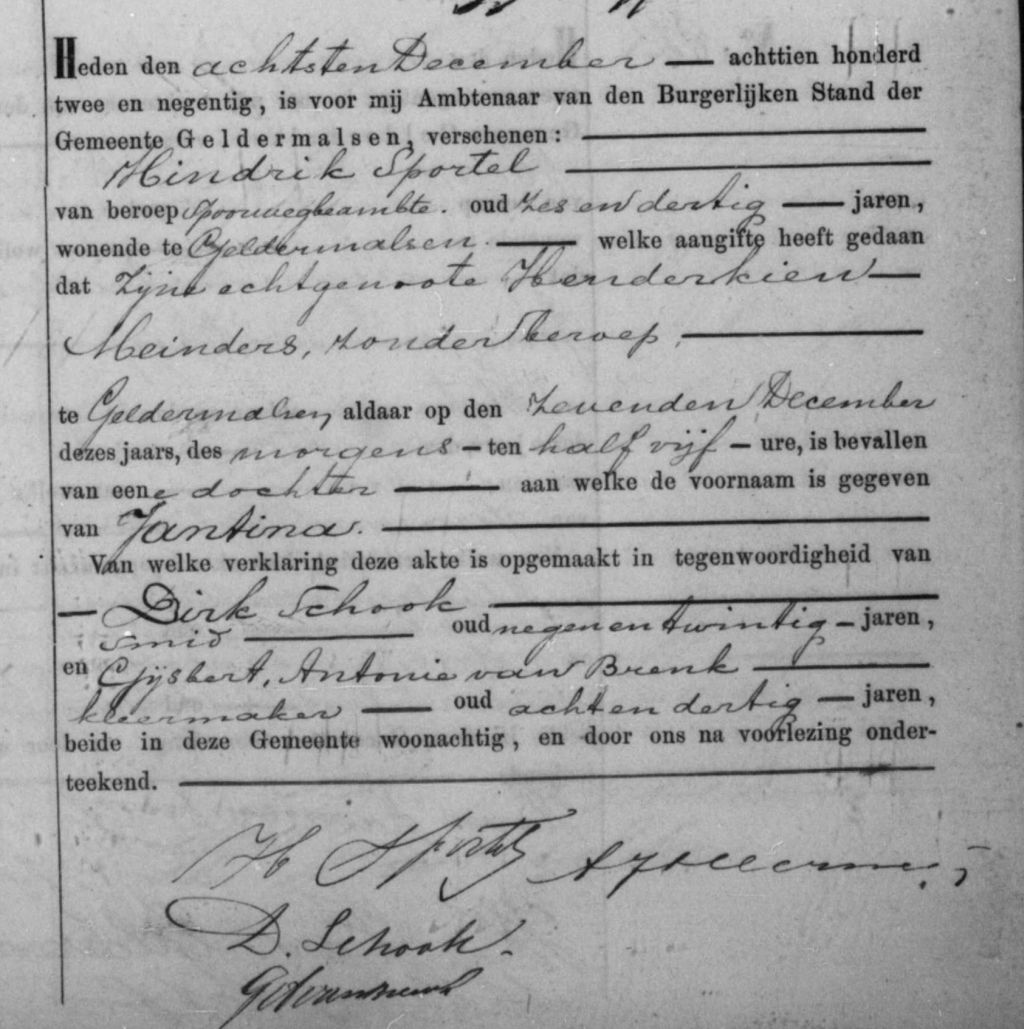 Heden den achtsten December — achttien honderd
twee en negentig, is voor mij Ambtenaar van den Burgerlijken Stand der
Gemeente Geldermalsen, verschenen:
Hindrik Sportel
van beroep Spoorwegbeambte. oud zes en dertig — jaren,
wonende te Geldermalsen. — welke aangifte heeft gedaan
dat zijne echtgenoote Henderkien —
Meinders, zonder beroep,
te Geldermalsen, aldaar op den zevenden December
dezes jaars, des morgens — ten half vijf — ure, is bevallen
van eene dochter — aan welke de voornaam is gegeven
van Jantina.
Van welke verklaring deze akte is opgemaakt in tegenwoordigheid van
— Dirk Schook
smid — oud negen en twintig — jaren,
en Gijsbert, Antonie van Brenk
kleermaker — oud acht en dertig — jaren,
beide in deze Gemeente woonachtig, en door ons na voorlezing onder-
teekend.
H Sportel
D. Schook.